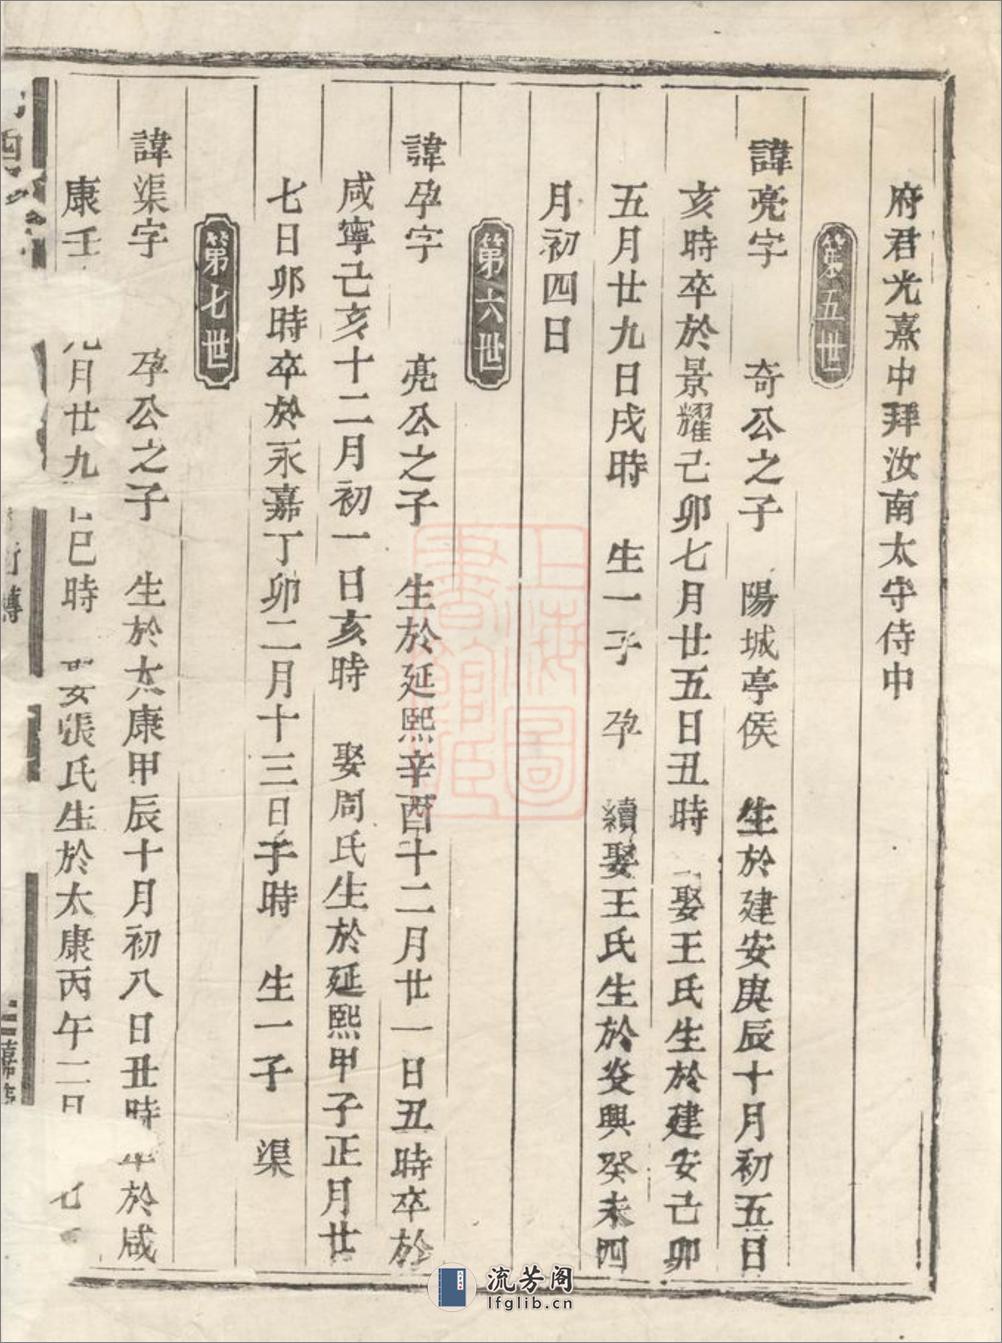 府君光熹中拜汝南太守侍中
第五世
諱亮字 奇公之子 陽城亭侯 生於建安庚辰十月初五日
亥時卒於景耀己卯七月廿五日丑時 娶王氏生於建安己卯
五月廿九日戌時 生一子 孕 續娶王氏生於炎興癸未四
月初四日
第六世
諱孕字 亮公之子 生於延熙辛酉十二月廿一日丑時卒於
咸寧己亥十二月初一日亥時 娶周氏生於延熙甲子正月廿
七日卯時卒於永嘉丁卯二月十三日子時 生一子 渠
第七世
諱渠字 孕公之子 生於太康甲辰十月初八日丑時卒於咸
康壬 九月廿九日巳時 娶張氏生於太康丙午二月 七
上海圖
書館藏
流芳阁
lfglib.cn